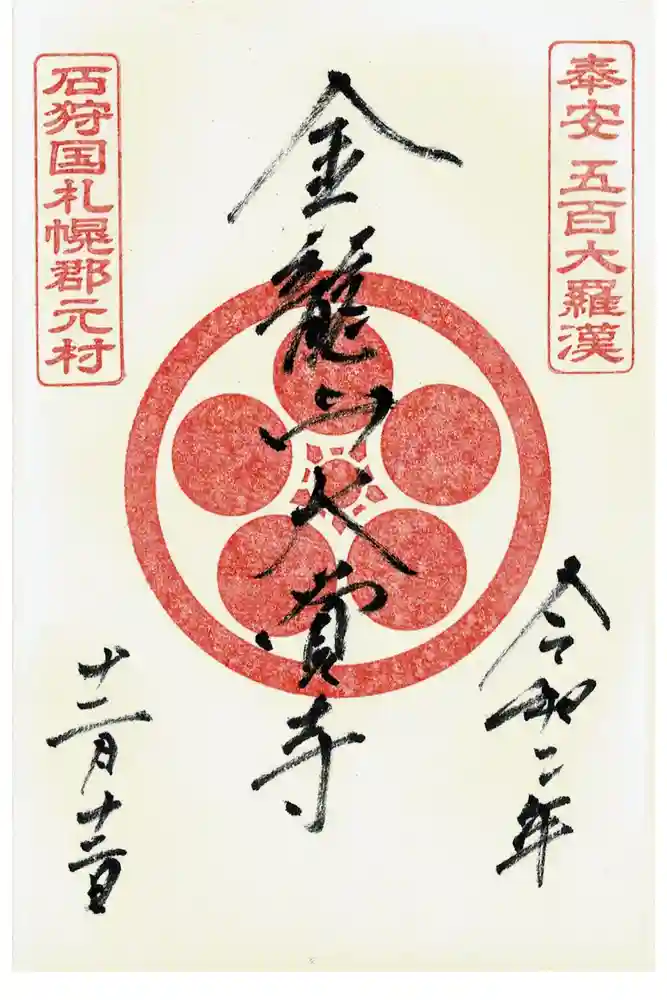 奉安 五百大羅漢
令和二年
金龍山大賞寺
十二月十三日
石狩国札幌郡元村